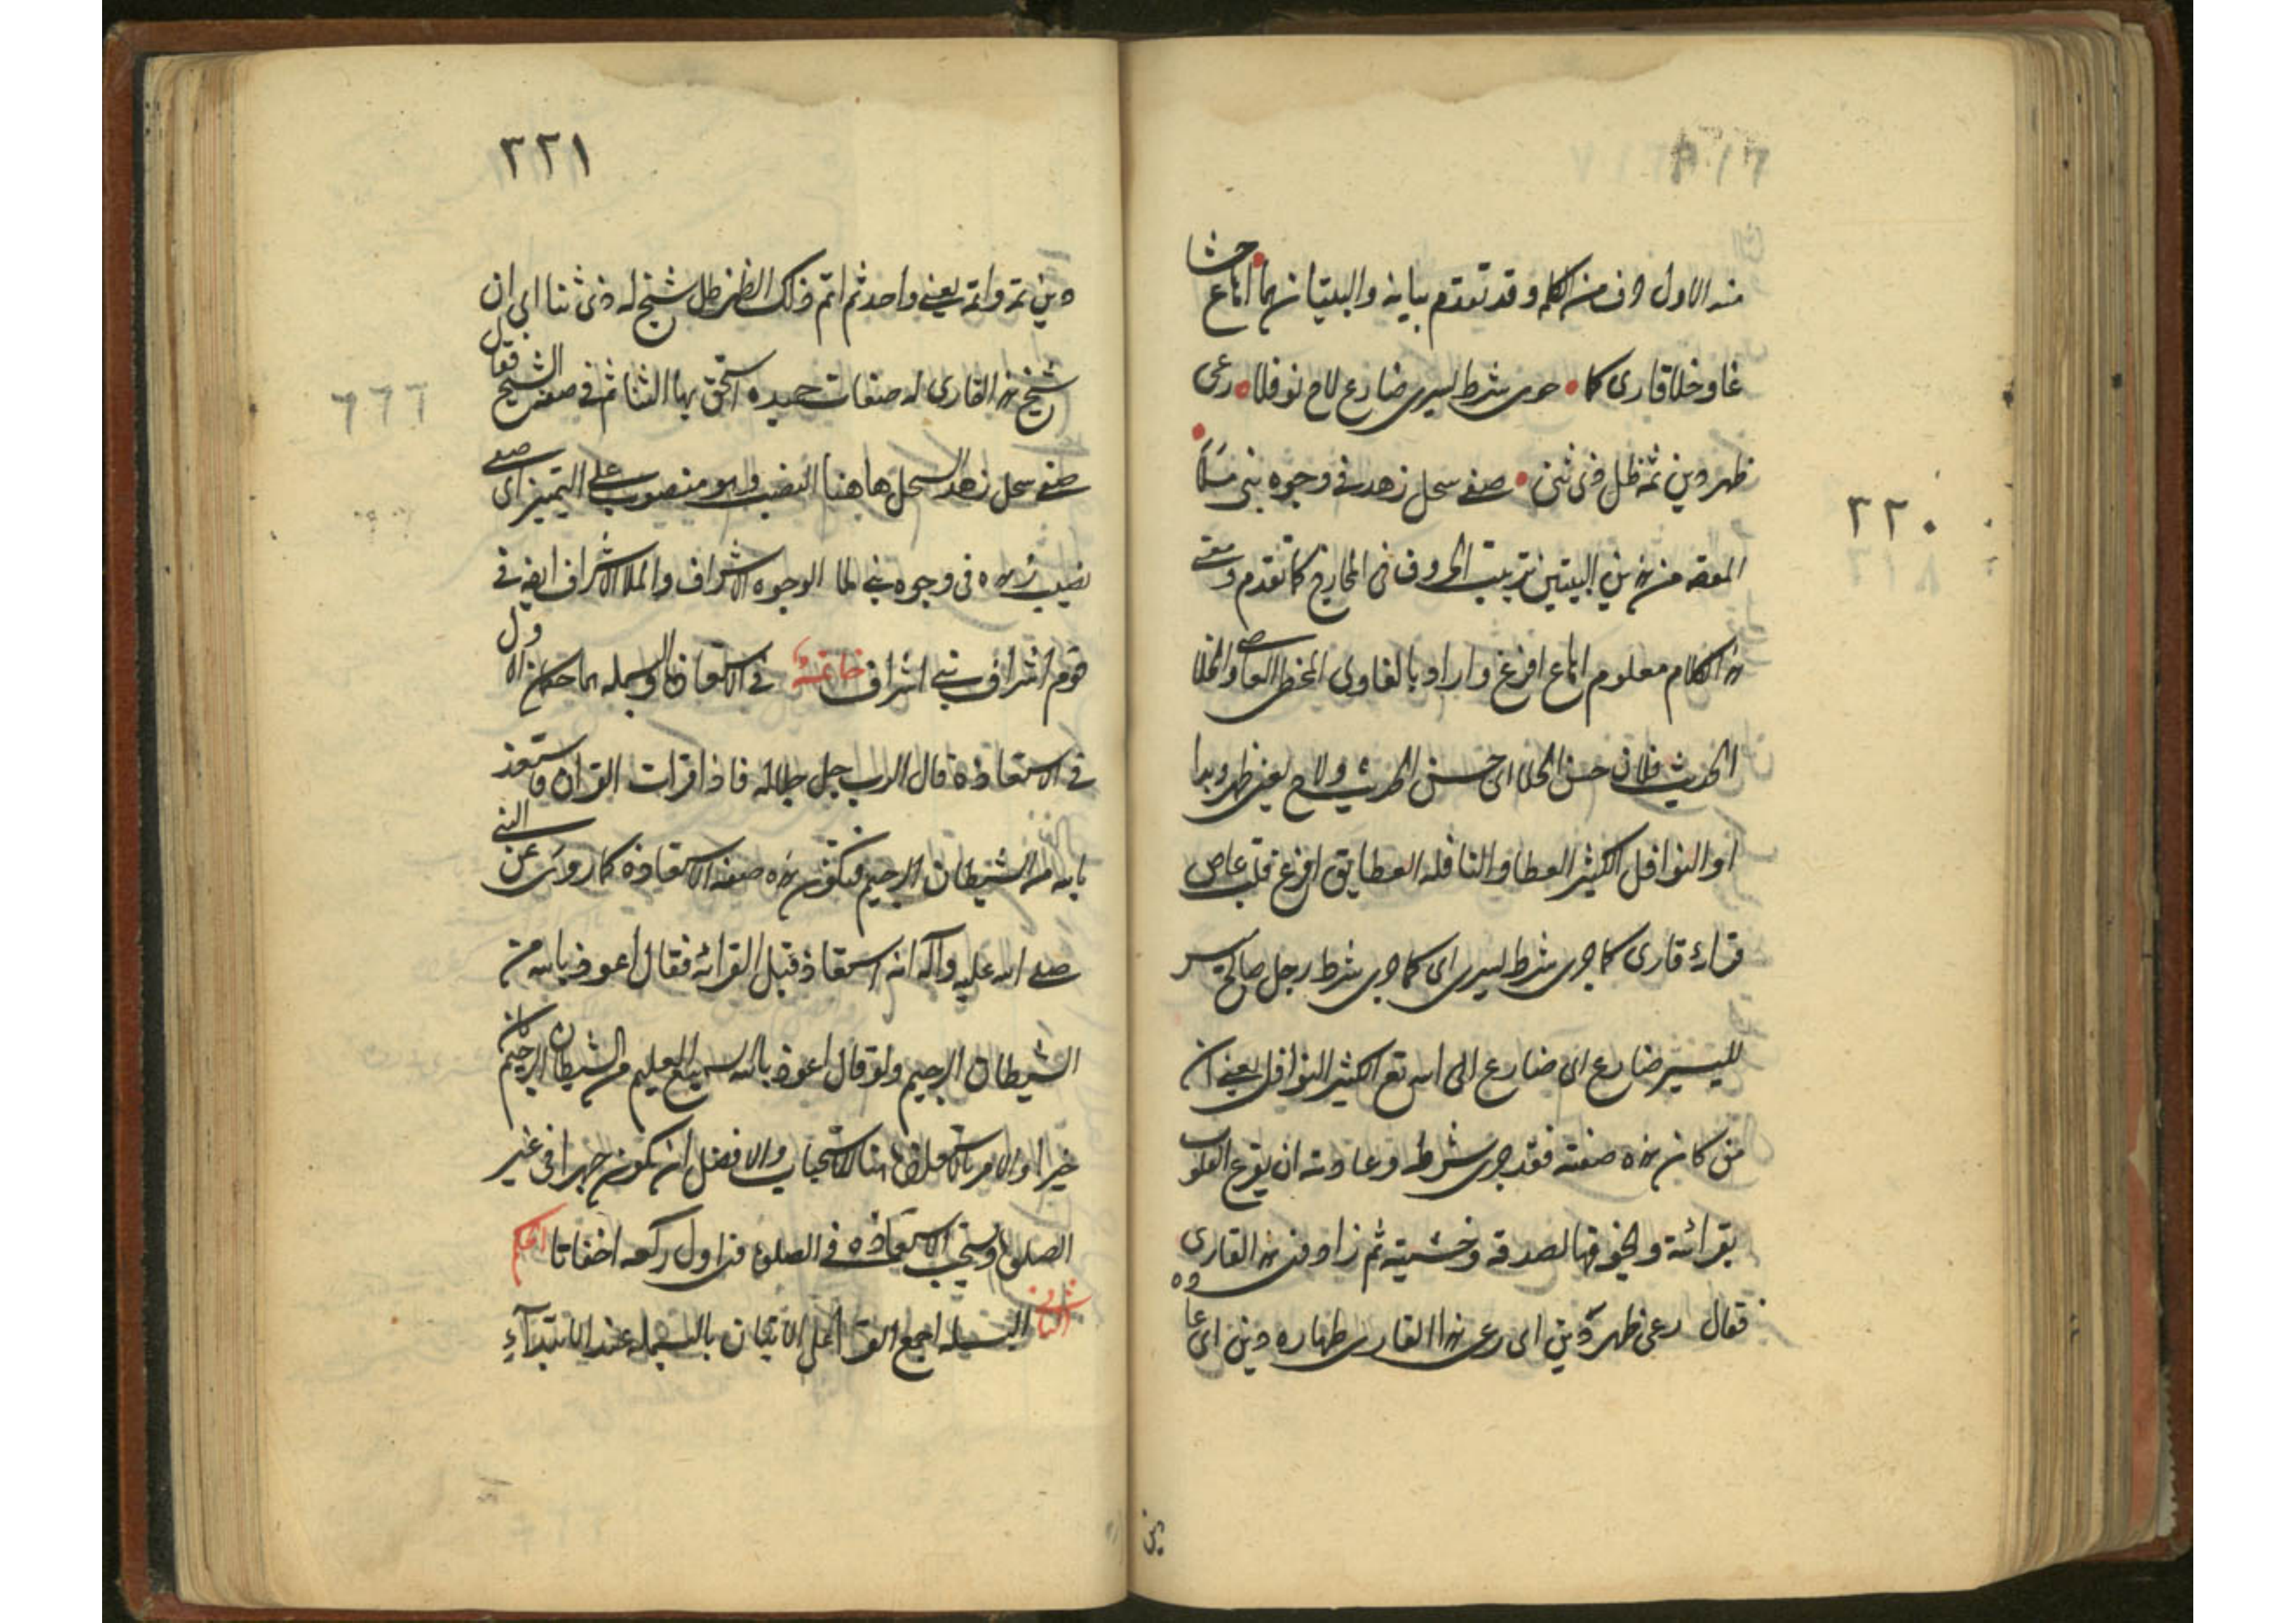 ٣٢٠
منه الاول حرف من الكلمه وقد تقدم بيانه والبيتان هما اهاع حشا
غاو خلا قارى كما جرى شرط ليسرى ضارع لاح نوفلا رعى
طهر دين تمه ظل ذى ثنى صفى سحل زهد فى وجوه بنى ملا
من هذين البيتين ترتيب الحروف فى المخارج كما تقدم ومعنى
هذا الكلام معلوم اهاع افزع واراد بالغاوى المخطى العاصى والخلا
الحديث فلان حسن الخلا اى حسن الحديث ولاح يعنى ظهر وبدا
او النوافل الكثير العطا والنافله العطا يقى افزع قلب عاص
قراءة قارى كما جرى شرط ليسرى اى كما جرى شرط رجل صالح
لليسير ضارع اى ضارع الى الله تع الكثير النوافل يعنى ان
من كان هذه صفته فقد جرى شرطه وعادته ان يقرع القلوب
بقرائته ويخوفها لصدقه وخشيته ثم زاد فى هذا القارى
فقال رعى طهر دين اى رعى هذا القارى طهاره دين اى عا وه
ين
٣٢١
دين تمه واتمه يعنى واحد ثم اتم ذلك الظهر ظل شيخ له ذى ثنا اى ان
شيخ هذا القارى له صفات حميده استحق بها الثنا ثم فى صفه الشيخ فقال
صفى سحل زهد السحل هاهنا النصيب وهو منصوب على التميز اى صفى
نصيب زهده فى وجوه بنى ملا الوجوه الاشراف والملا الاشراف ايضا فى
قوم اشراف بنى اشراف خاتمة فى الاستعاذه والبسمله هما حكمان الاول
فى الاستعاذة قال الرب جل جلاله فاذا قرات القران فاستعذ
بالله من الشيطان الرجيم فتكون هذه صفه الاستعاذة كما روى عن النبى
صلى الله عليه وآله انه استعاذ قبل القرائه فقال اعوذ بالله من
الشيطان الرجيم ولو قال اعوذ بالله السميع العليم من الشيطان الرجيم كان
خيرا والامر بالاستعاذه هنا للاستحباب والافضل ان يكون جهرا فى غير
الصلوة وتستحب الاستعاذه فى الصلوة فى اول ركعه اخفاتا الحكم
الثانى البسمله اجمع القرا على الاتيان بالبسمله عند الابتدآء